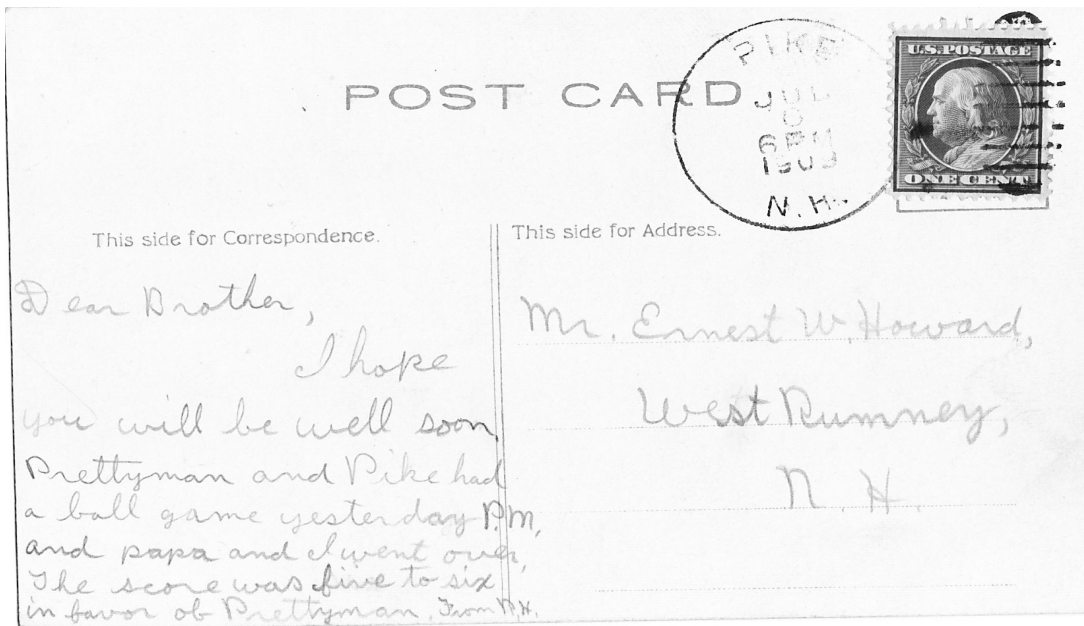 POST CARD
PIKE
JUL
6
6 PM
1909
N. H.
U.S. POSTAGE
ONE CENT
This side for Correspondence.
Dear Brother,
I hope
you will be well soon.
Prettyman and Pike had
a ball game yesterday P.M,
and papa and I went over,
The score was five to six
in favor of Prettyman. From P.H.
This side for Address.
Mr. Ernest W. Howard,
West Rumney,
N. H.